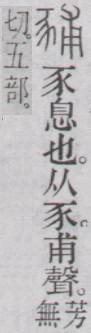 豧豕息也。从豕。甫聲。芳無
切。五部。